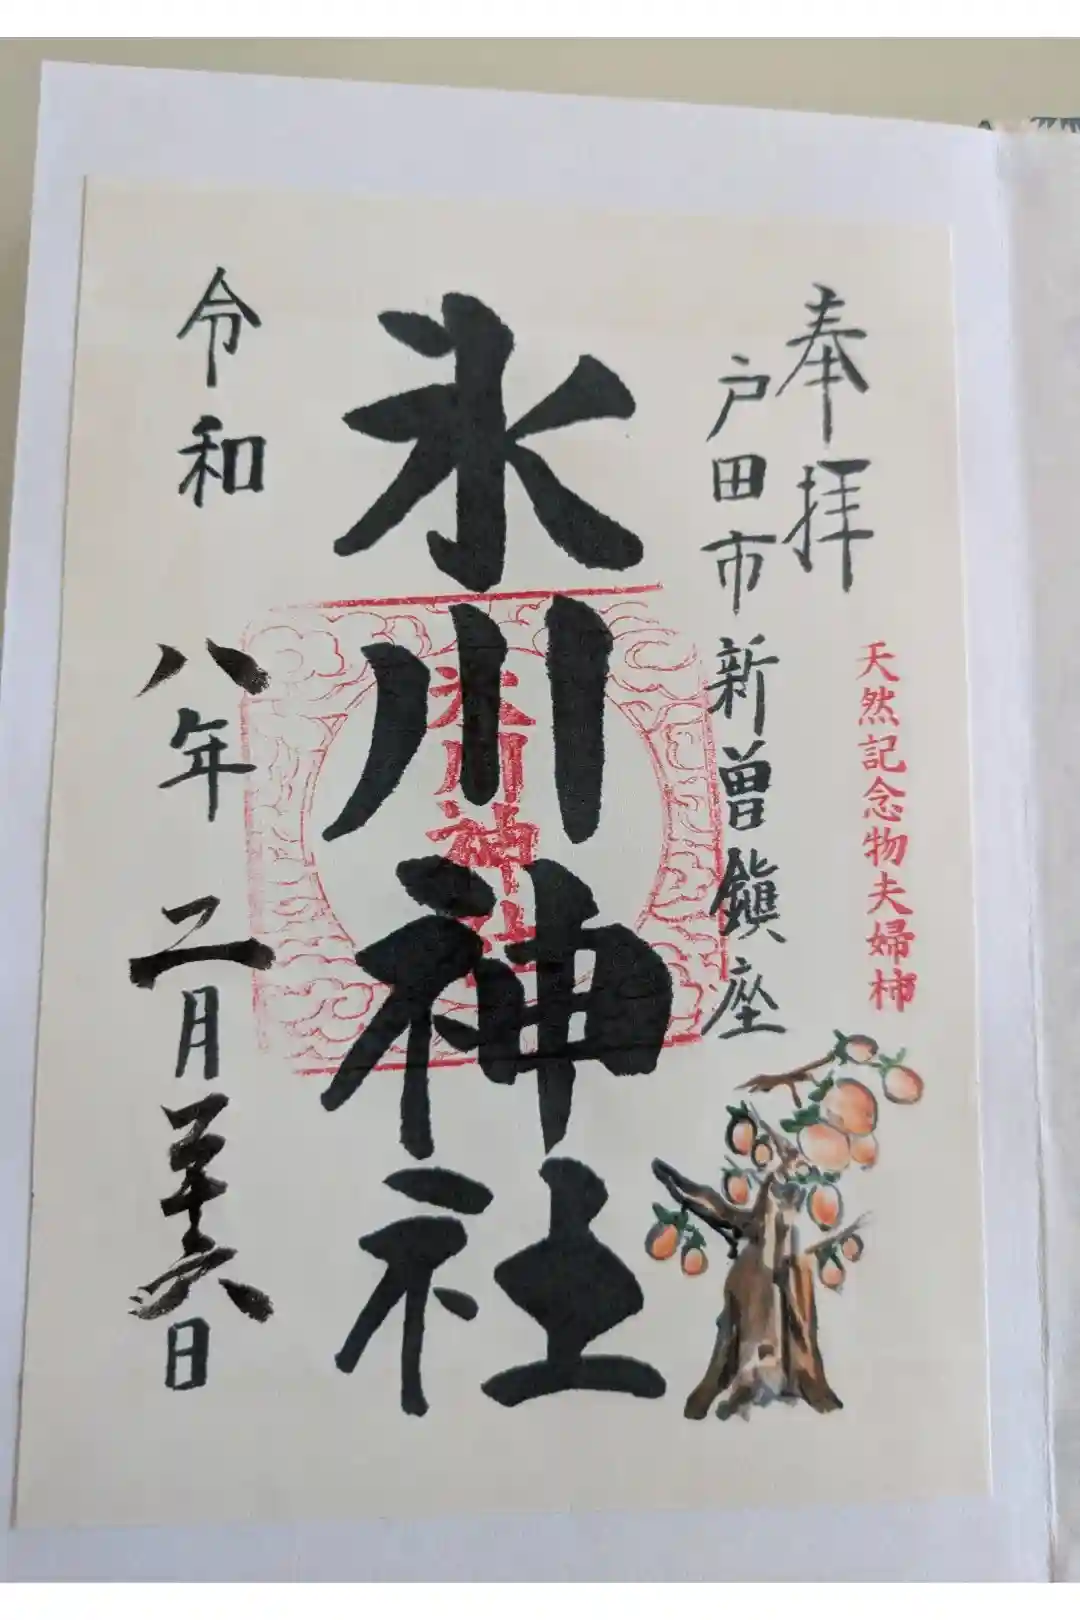 奉拝
天然記念物夫婦柿
戸田市新曽鎭座
氷川神社
氷川神社
令和八年二月二十六日